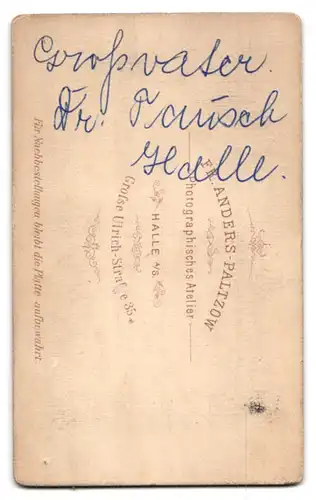 Großvater.
Dr. Tausch
Halle.
FR. ANDERS-PALTZOW
Photographisches Atelier
HALLE a/S.
Große Ulrich-Straße 35
Für Nachbestellungen bleibt die Platte aufbewahrt.